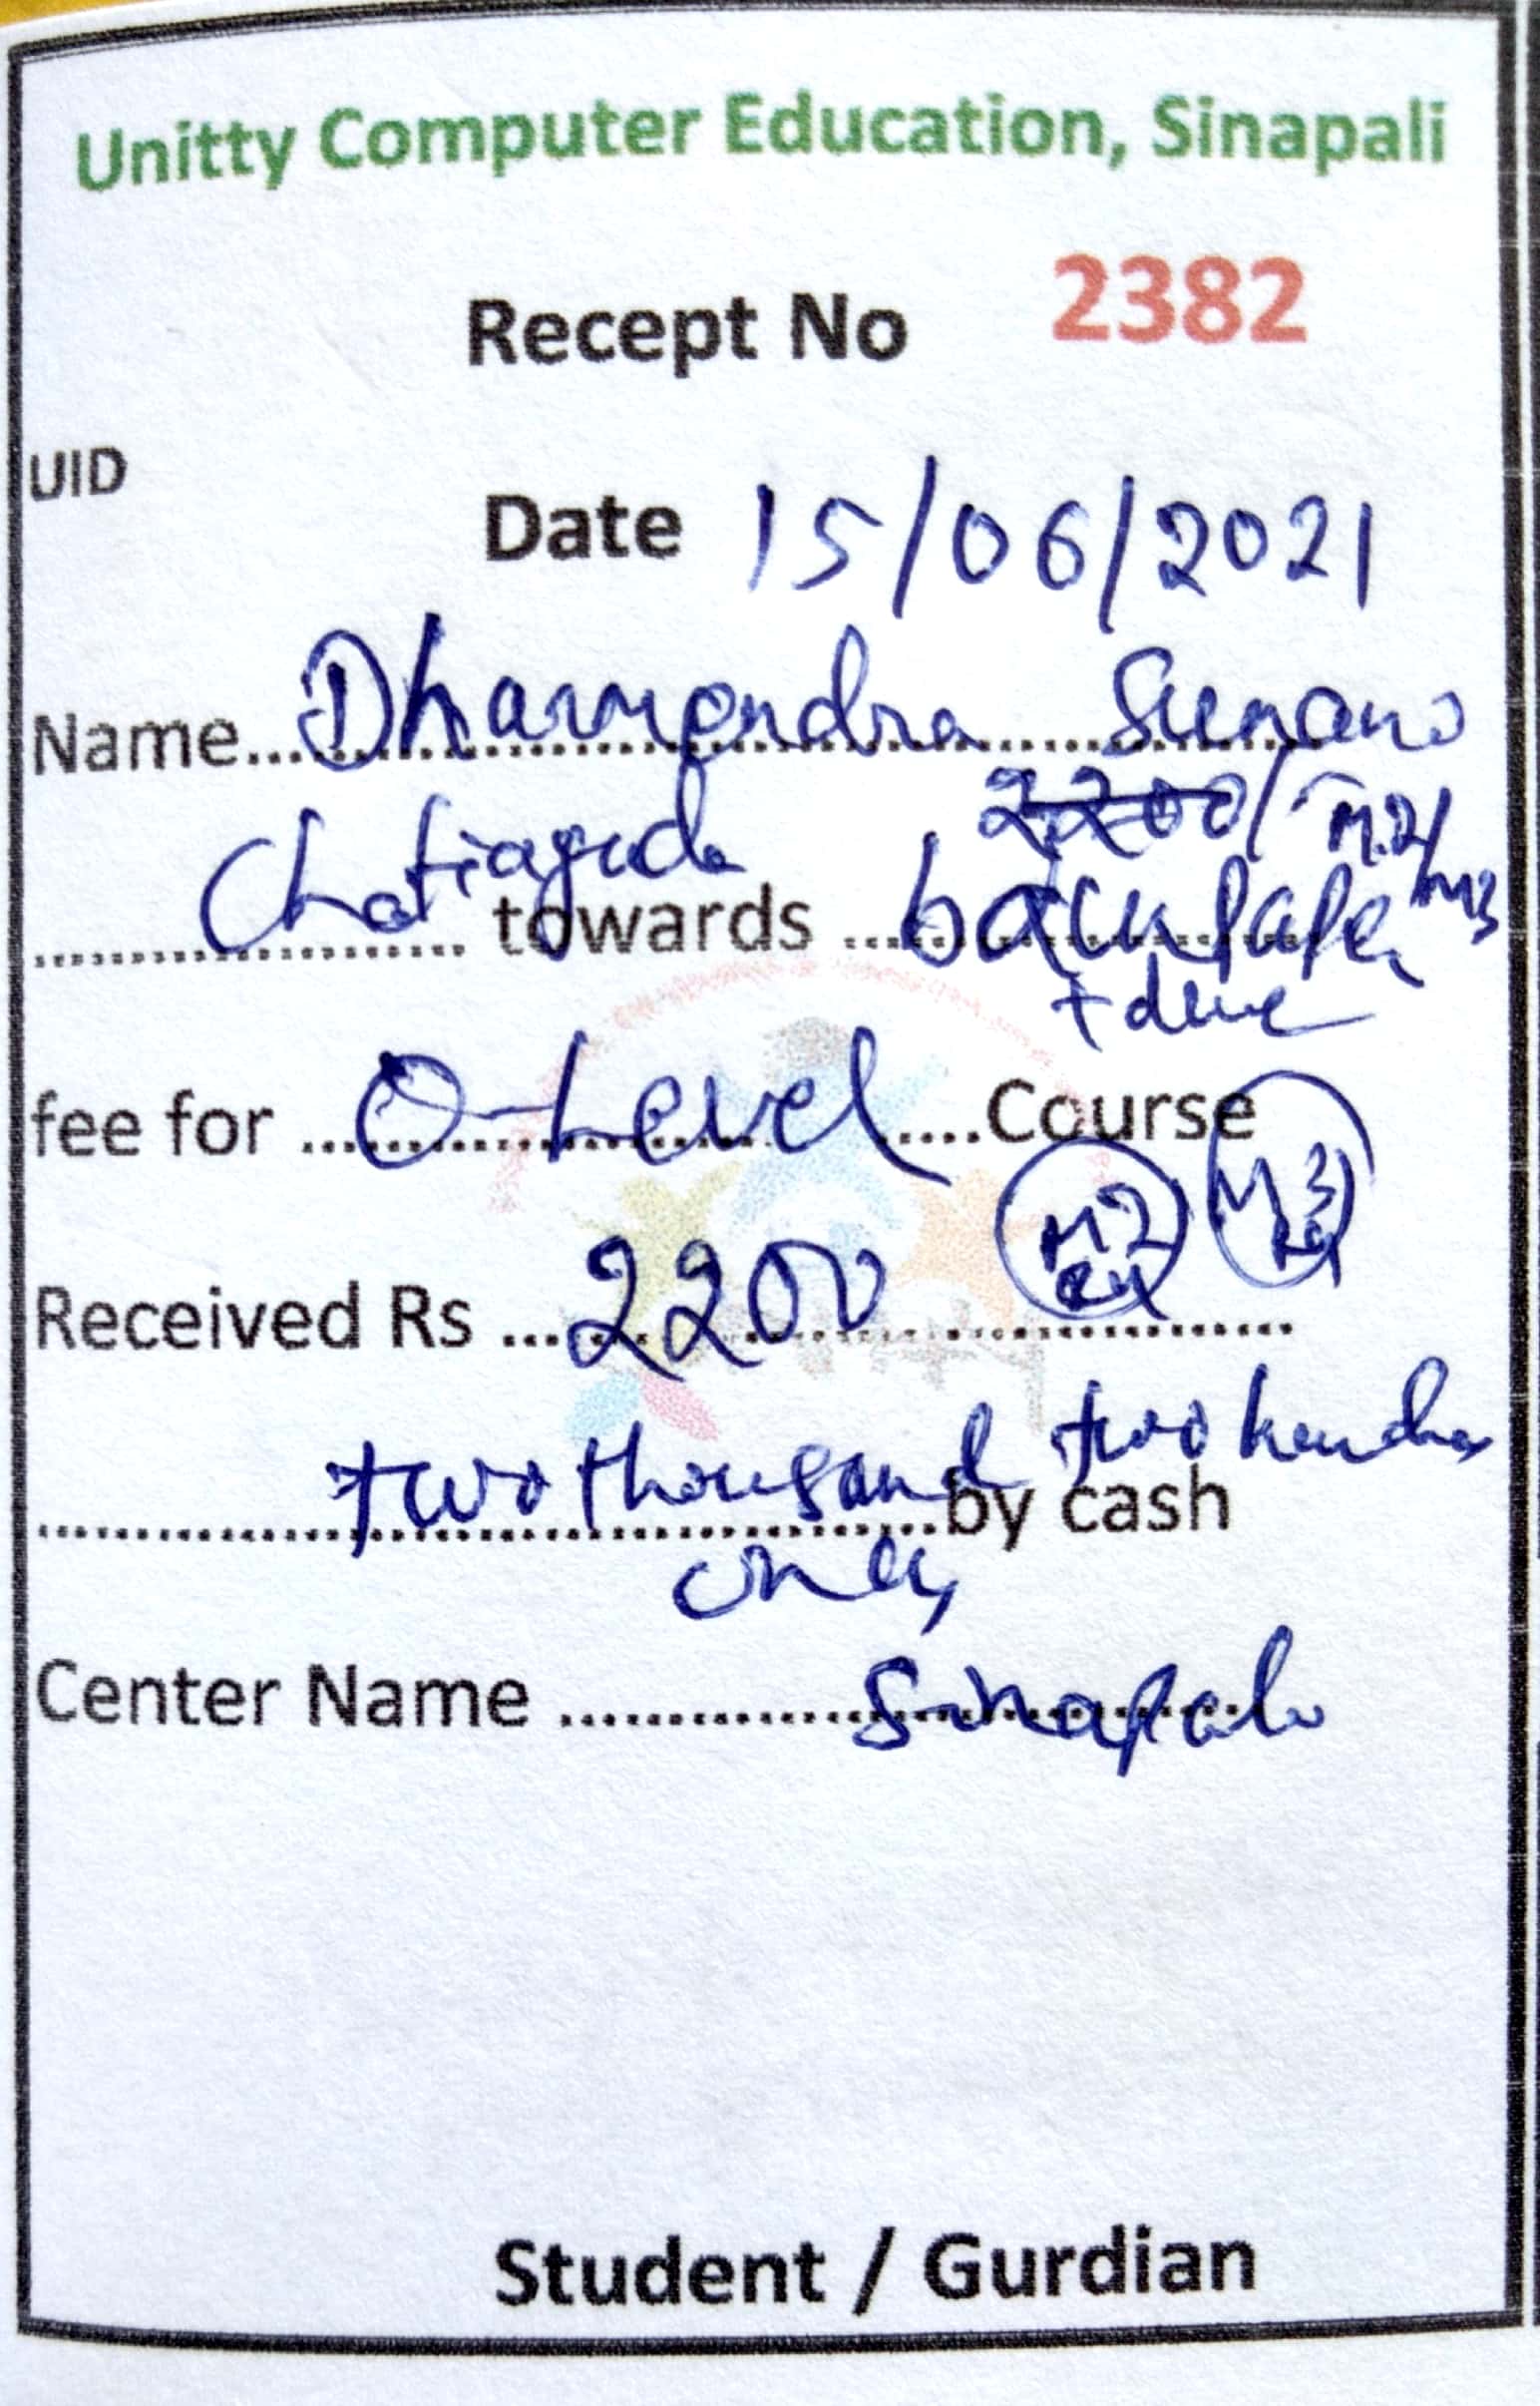 Unitty Computer Education, Sinapali
Recept No 2382
UID
Date 15/06/2021
Name Dharmendra Sunani
2200/- M2/M3
Chatiaguda towards backpaper
+ due
fee for O-Level Course
M2 M3
Received Rs 2200
two thousand two hundred by cash
only
Center Name Sinapali
Student / Gurdian